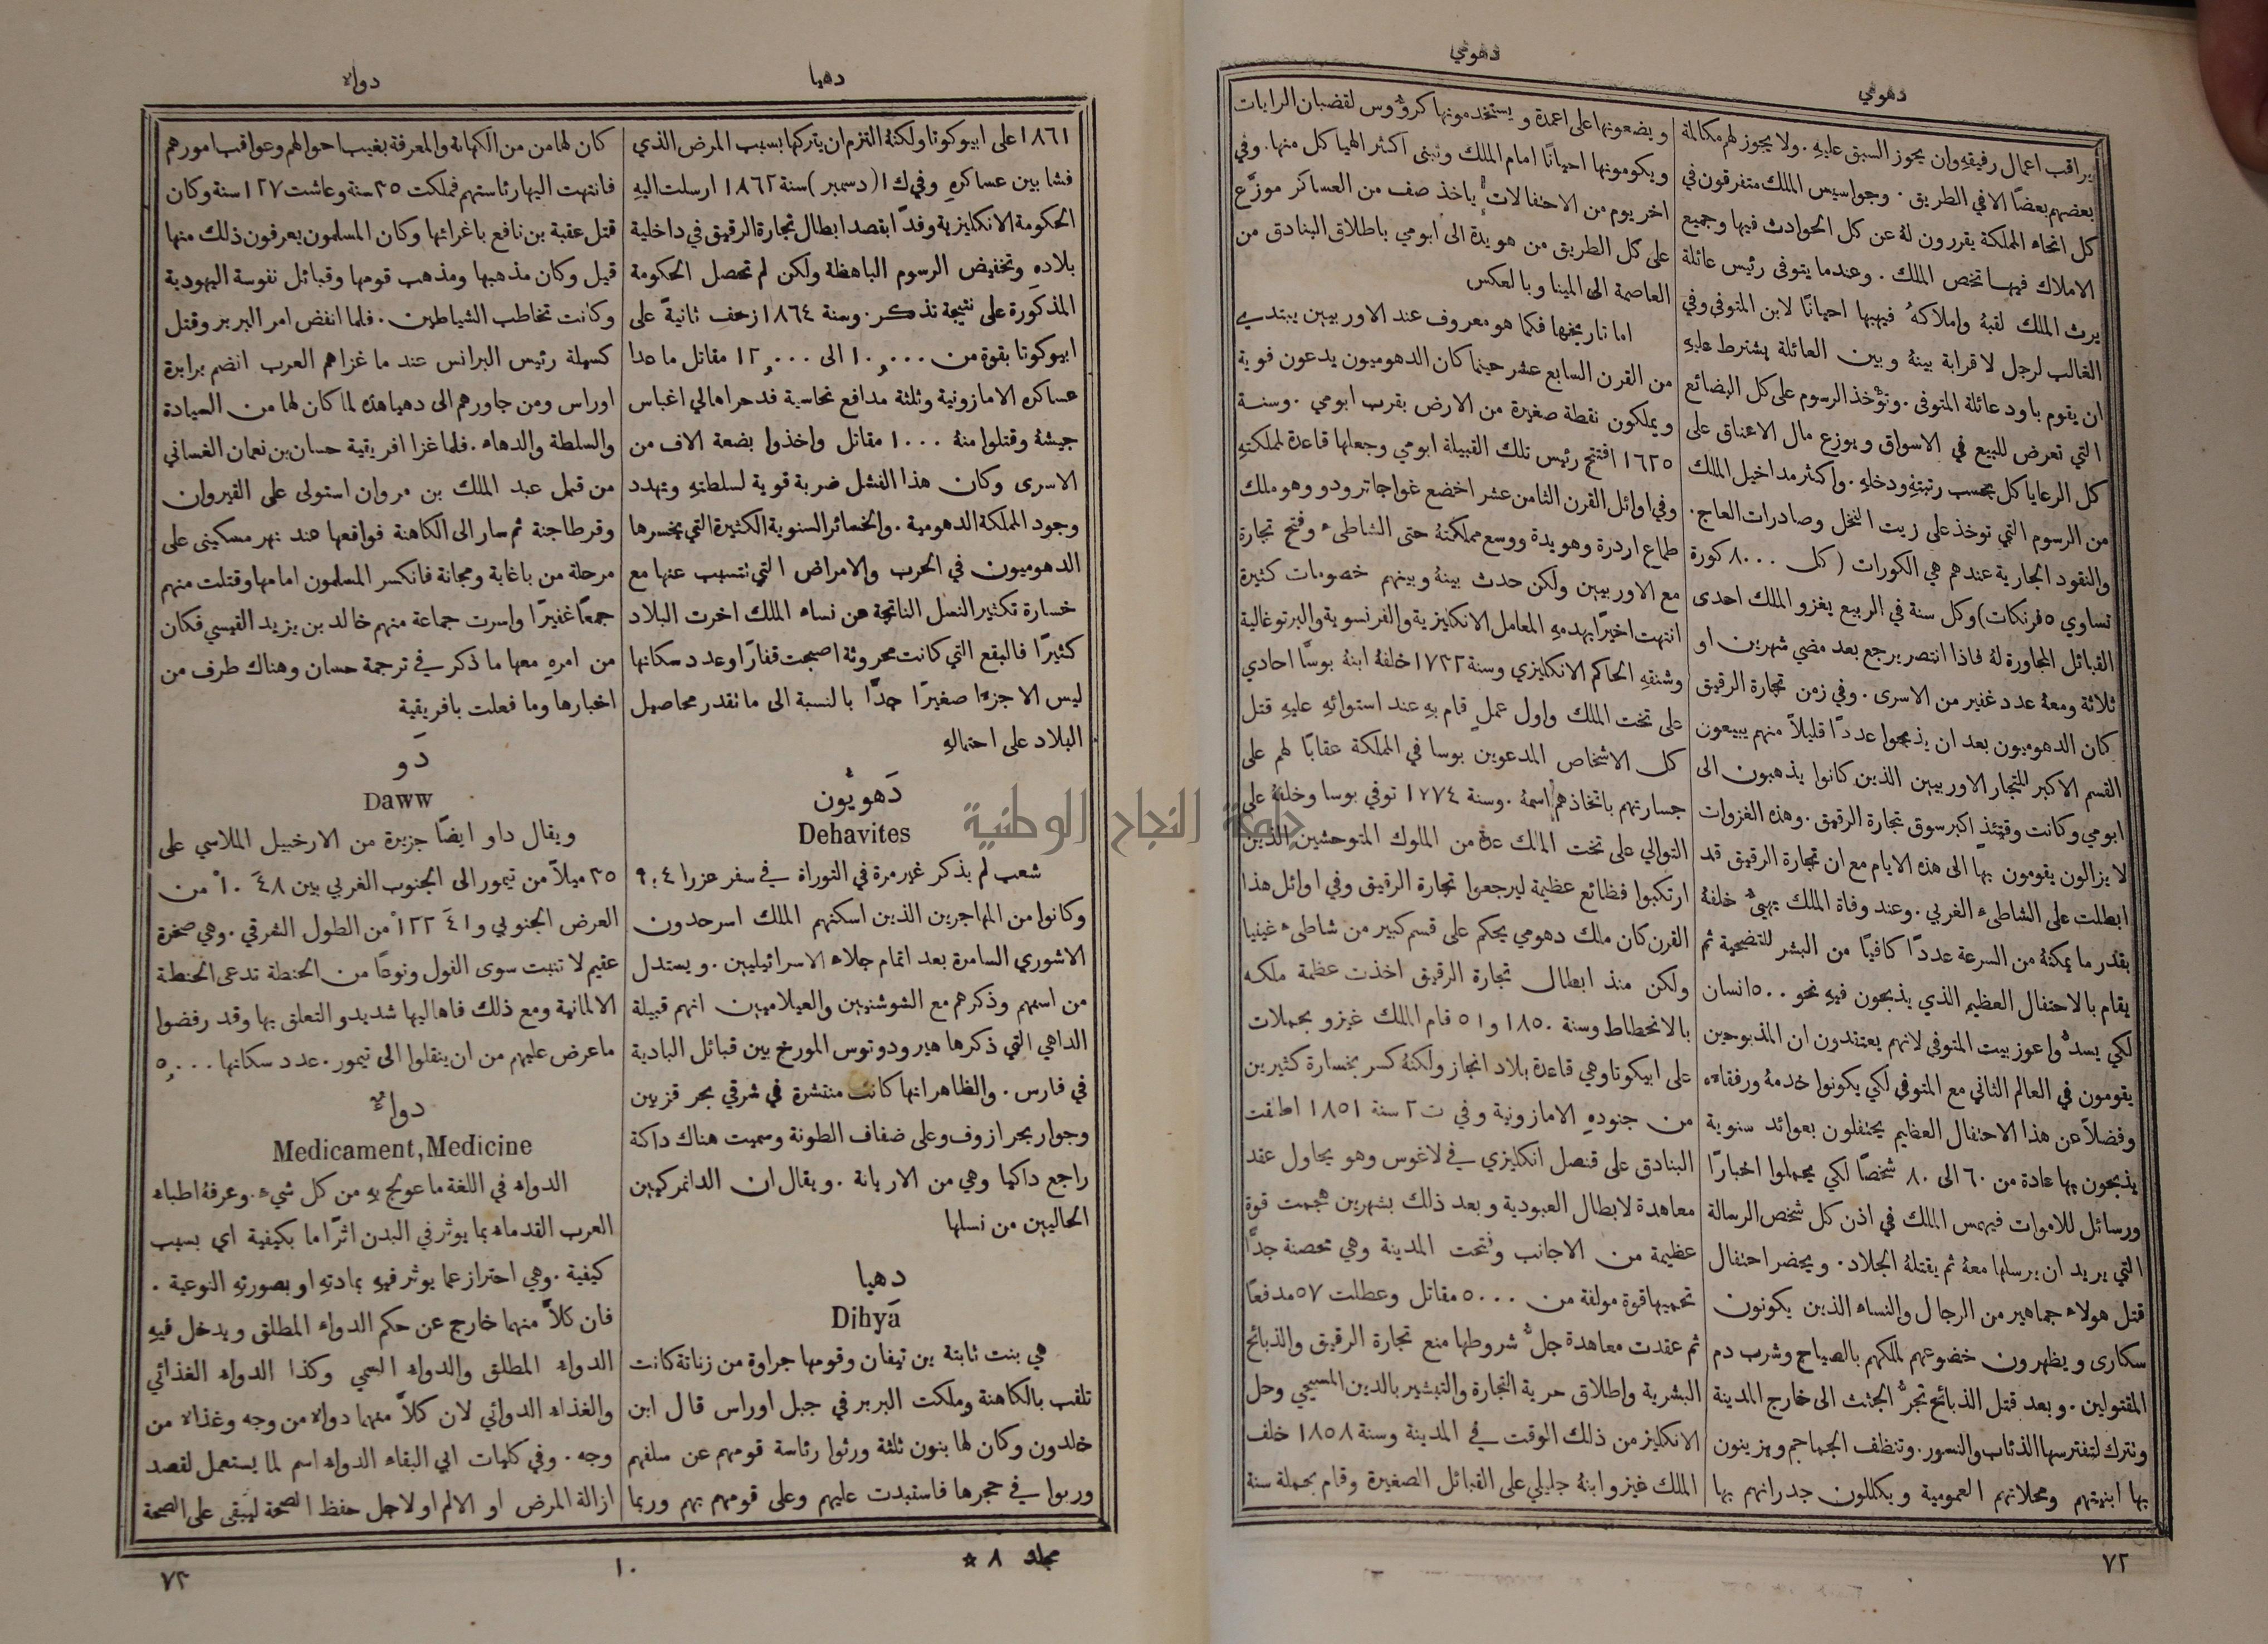 دهومي
دهومي
يراقب اعمال رفيقهِ وان يجوز السبق عليهِ. ولا يجوز لهم مكالمة
بعضهم بعضًا الا في الطريق. وجواسيس الملك متفرقون في
كل انحاء المملكة يقررون لهُ عن كل الحوادث فيها وجميع
الاملاك فيها تخص الملك. وعندما يتوفى رئيس عائلة
يرث الملك لقبهُ واملاكهُ فيهبها احيانًا لابن المتوفى وفي
الغالب لرجل لا قرابة بينهُ وبين العائلة يشترط عليهِ
ان يقوم باود عائلة المتوفى. وتؤخذ الرسوم على كل البضائع
التي تعرض للبيع في الاسواق ويوزع مال الاعناق على
كل الرعايا كل بحسب رتبتهِ ودخلهِ. واكثر مداخيل الملك
من الرسوم التي توخذ على زيت النخل وصادرات العاج.
والنقود الجارية عندهم هي الكورات (كل ٨٠٠٠ كورة
تساوي ٥ فرنكات) وكل سنة في الربيع يغزو الملك احدى
القبائل المجاورة لهُ فاذا انتصر يرجع بعد مضي شهرين او
ثلاثة ومعهُ عدد غفير من الاسرى. وفي زمن تجارة الرقيق
كان الدهوميون بعد ان يذبحوا عددًا قليلاً منهم يبيعون
القسم الاكبر للتجار الاوربيين الذين كانوا يذهبون الى
ابومي وكانت وقتئذٍ اكبر سوق تجارة الرقيق. وهذه الغزوات
لا يزالون يقومون بها الى هذه الايام مع ان تجارة الرقيق قد
ابطلت على الشاطىء الغربي. وعند وفاة الملك يهيئُ خلفهُ
بقدر ما يمكنهُ من السرعة عددًا كافيًا من البشر للتضحية ثم
يقام بالاحتفال العظيم الذي يذبحون فيهِ نحو ٥٠٠ انسان
لكي يسدُّوا عوز بيت المتوفى لانهم يعتقدون ان المذبوحين
يقومون في العالم الثاني مع المتوفي لكي يكونوا خدمهُ ورفقاءه
وفضلاً عن هذا الاحتفال العظيم يحتفلون بعوائد سنوية
يذبحون بها عادة من ٦٠ الى ٨٠ شخصًا لكي يحملوا اخبارًا
ورسائل للاموات فيهمس الملك في اذن كل شخص الرسالة
التي يريد ان يرسلها معهُ ثم يقتلهُ الجلاد. ويحضر احتفال
قتل هولاء جماهير من الرجال والنساء الذين يكونون
سكارى ويظهرون خضوعهم لملكهم بالصياح وشرب دم
المقتولين. وبعد قتل الذبائح تجرُّ الجثث الى خارج المدينة
وتترك لتفترسها الذئاب والنسور. وتنظف الجماجم ويزينون
بها ابنيتهم ومحلاتهم العمومية ويكللون جدرانهم بها
ويضعونها على اعمدة ويستخدمونها كرؤوس لقضبان الرايات
ويكومونها احيانًا امام الملك وتبنى اكثر الهياكل منها. وفي
اخر يوم من الاحتفالات ياخذ صف من العساكر موزَّع
على كل الطريق من هويدة الى ابومي باطلاق البنادق من
العاصمة الى المينا وبالعكس
اما تاريخها فكما هو معروف عند الاوربيين يبتدي
من القرن السابع عشر حينما كان الدهوميون يدعون فوية
ويملكون نقطة صغيرة من الارض بقرب ابومي. وسنة
١٦٢٥ افتتح رئيس تلك القبيلة ابومي وجعلها قاعدة لمملكتهِ
وفي اوائل القرن الثامن عشر اخضع غواجا ترودو وهو ملك
طماع اردرة وهويدة ووسع مملكتهُ حتى الشاطىء وفتح تجارة
مع الاوربيين ولكن حدث بينهُ وبينهم خصومات كثيرة
انتهت اخيرًا بهدمهِ المعامل الانكليزية والفرنسوية والبرتوغالية
وشنقهِ الحاكم الانكليزي وسنة ١٧٣٢ خلفهُ ابنهُ بوسَّا احادي
على تخت الملك واول عملٍ قام بهِ عند استوائهِ عليهِ قتل
كل الاشخاص المدعوين بوسا في المملكة عقابًا لهم على
جسارتهم باتخاذهم اسمهُ. وسنة ١٧٧٤ توفي بوسا وخلفهُ على
التوالي على تخت الملك عدة من الملوك المتوحشين الذين
ارتكبوا فظائع عظيمة ليرجعوا تجارة الرقيق وفي اوائل هذا
القرن كان ملك دهومي يحكم على قسم كبير من شاطىء غينيا
ولكن منذ ابطال تجارة الرقيق اخذت عظمة ملكه
بالانحطاط وسنة ١٨٥٠ و٥١ قام الملك غيزو بحملات
على ابيكوتا وهي قاعدة بلاد انجاز ولكنهُ كسر بخسارة كثيرين
من جنودهِ الامازونية وفي ت٢ سنة ١٨٥١ اطلقت
البنادق على قنصل انكليزي في لاغوس وهو يحاول عقد
معاهدة لابطال العبودية وبعد ذلك بشهرين هجمت قوة
عظيمة من الاجانب وفتحت المدينة وهي محصنة جدًّا
تحميها قوة مولفة من ٥٠٠٠ مقاتل وعطلت ٥٧ مدفعًا
ثم عقدت معاهدة جلُّ شروطها منع تجارة الرقيق والذبائح
البشرية واطلاق حرية التجارة والتبشير بالدين المسيحي وحل
الانكليز من ذلك الوقت في المدينة وسنة ١٨٥٨ خلف
الملك غيزو ابنهُ جليلي على القبائل الصغيرة وقام بحملة سنة
٧٢
دهيا
دواء
١٨٦١ على ابيوكوتا ولكنهُ التزم ان يتركها بسبب المرض الذي
فشا بين عساكرهِ وفي ك١ (دسمبر) سنة ١٨٦٢ ارسلت اليهِ
الحكومة الانكليزية وفدًا بقصد ابطال تجارة الرقيق في داخلية
بلادهِ وتخفيض الرسوم الباهظة ولكن لم تحصل الحكومة
المذكورة على نتيجة تذكر. وسنة ١٨٦٤ زحف ثانيةً على
ابيوكوتا بقوة من ١٠,٠٠٠ الى ١٢,٠٠٠ مقاتل ما عدا
عساكره الامازونية وثلثة مدافع نحاسية فدحر اهالي اغباس
جيشهُ وقتلوا منهُ ١٠٠٠ مقاتل واخذوا بضعة الاف من
الاسرى وكان هذا الفشل ضربة قوية لسلطتهِ وتهدد
وجود المملكة الدهومية. والخسائر السنوية الكثيرة التي يخسرها
الدهوميون في الحرب والامراض التي تتسبب عنها مع
خسارة تكثير النسل الناتجة عن نساء الملك اخرت البلاد
كثيرًا فالبقع التي كانت محروثة اصبحت قفارًا وعدد سكانها
ليس الا جزءًا صغيرًا جدًّا بالنسبة الى ما تقدر محاصيل
البلاد على احتمالهِ
دَهويُون
Dehavites
شعب لم يذكر غير مرة في التوراة في سفر عزرا ٤: ٩
وكانوا من المهاجرين الذين اسكنهم الملك اسرحدون
الاشوري السامرة بعد اتمام جلاء الاسرائيليين. ويستدل
من اسمهم وذكرهم مع الشوشنيين والعيلاميين انهم قبيلة
الداهي التي ذكرها هيرودوتوس المورخ بين قبائل البادية
في فارس. والظاهر انها كانت منتشرة في شرقي بحر قزبين
وجوار بحر ازوف وعلى ضفاف الطونة وسميت هناك داكة
راجع داكيا وهي من الاريانة. ويقال ان الدانمركيين
الحاليين من نسلها
دِهيا
Dihya
هي بنت ثابتة بن تيفان وقومها جراوة من زناتة كانت
تلقب بالكاهنة وملكت البربر في جبل اوراس قال ابن
خلدون وكان لها بنون ثلثة ورثوا رئاسة قومهم عن سلفهم
وربوا في حجرها فاستبدت عليهم وعلى قومهم بهم وربما
كان لها من من الكهانة والمعرفة بغيب احوالهم وعواقب امورهم
فانتهت اليها رئاستهم فملكت ٣٥ سنة وعاشت ١٢٧ سنة وكان
قتل عقبة بن نافع باغرائها وكان المسلمون يعرفون ذلك منها
قيل وكان مذهبها ومذهب قومها وقبائل نفوسة اليهودية
وكانت تخاطب الشياطين. فلما انفض امر البربر وقتل
كسيلة رئيس البرانس عند ما غزاهم العرب انضم برابرة
اوراس ومن جاورهم الى دهيا هذه لما كان لها من السيادة
والسلطة والدهاء. فلما غزا افريقية حسان بن نعمان الغساني
من قبل عبد الملك بن مروان استولى على القيروان
وقرطاجنة ثم سار الى الكاهنة فواقعها عند نهر مسكيني على
مرحلة من باغاية ومجانة فانكسر المسلمون امامها وقتلت منهم
جمعًا غفيرًا واسرت جماعة منهم خالد بن يزيد القيسي فكان
من امرهِ معها ما ذكر في ترجمة حسان وهناك طرف من
اخبارها وما فعلت بافريقية
دَو
Daww
ويقال داو ايضًا جزيرة من الارخبيل الملاسي على
٣٥ ميلاً من تيمور الى الجنوب الغربي بين ٤٨َ ١٠ْ من
العرض الجنوبي و٤١َ ١٢٢ْ من الطول الشرقي. وهي صخرة
عقيم لا تنبت سوى الفول ونوعًا من الحنطة تدعى الحنطة
الالمانية ومع ذلك فاهاليها شديدو التعلق بها وقد رفضوا
ما عرض عليهم من ان ينقلوا الى تيمور. عدد سكانها ٥,٠٠٠
دواءٌ
Medicament, Medicine
الدواء في اللغة ما عولج بهِ من كل شيء. وعرفهُ اطباء
العرب القدماء بما يوثر في البدن اثرًا ما بكيفية اي بسبب
كيفية. وهي احتراز عما يوثر فيهِ بمادتهِ او بصورتهِ النوعية.
فان كلاًّ منهما خارج عن حكم الدواء المطلق ويدخل فيهِ
الدواء المطلق والدواء السمي وكذا الدواء الغذائي
والغذاء الدوائي لان كلاًّ منهما دواء من وجه وغذاء من
وجه. وفي كليات ابي البقاء الدواء اسم لما يستعمل لقصد
ازالة المرض او الالم او لاجل حفظ الصحة ليبقى على الصحة
مجلد ٨ *
١٠
٧٣
جامعة النجاح الوطنية